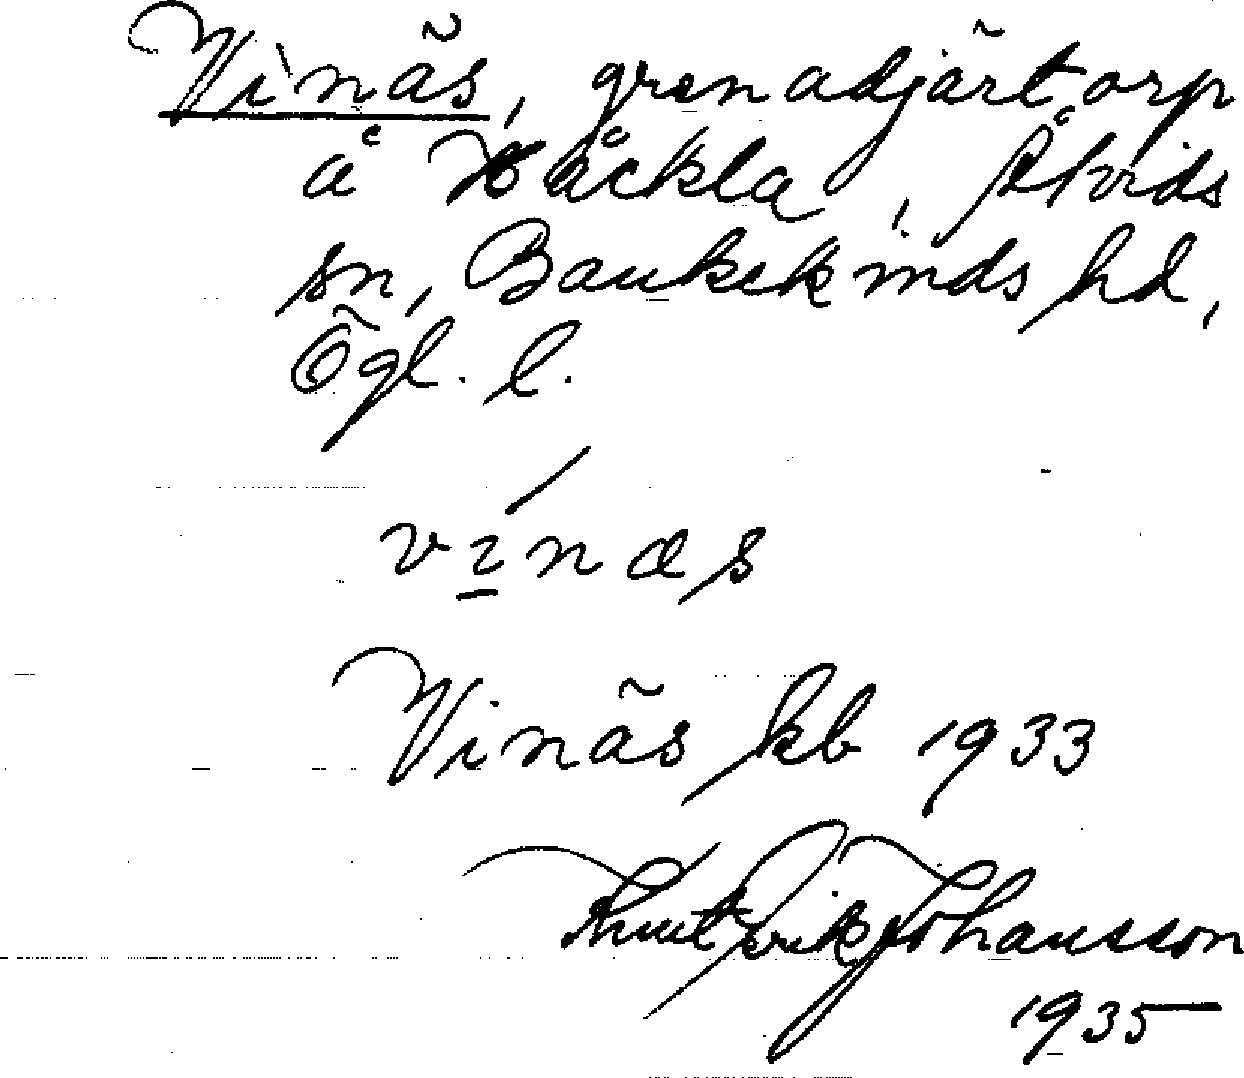 Vinäs, grenadjärtorp
å Håckla, Åtvids
sn, Bankekinds hd,
Ögl. l.
vinæs
Vinäs kb 1933
Knut Erik Johansson
1935